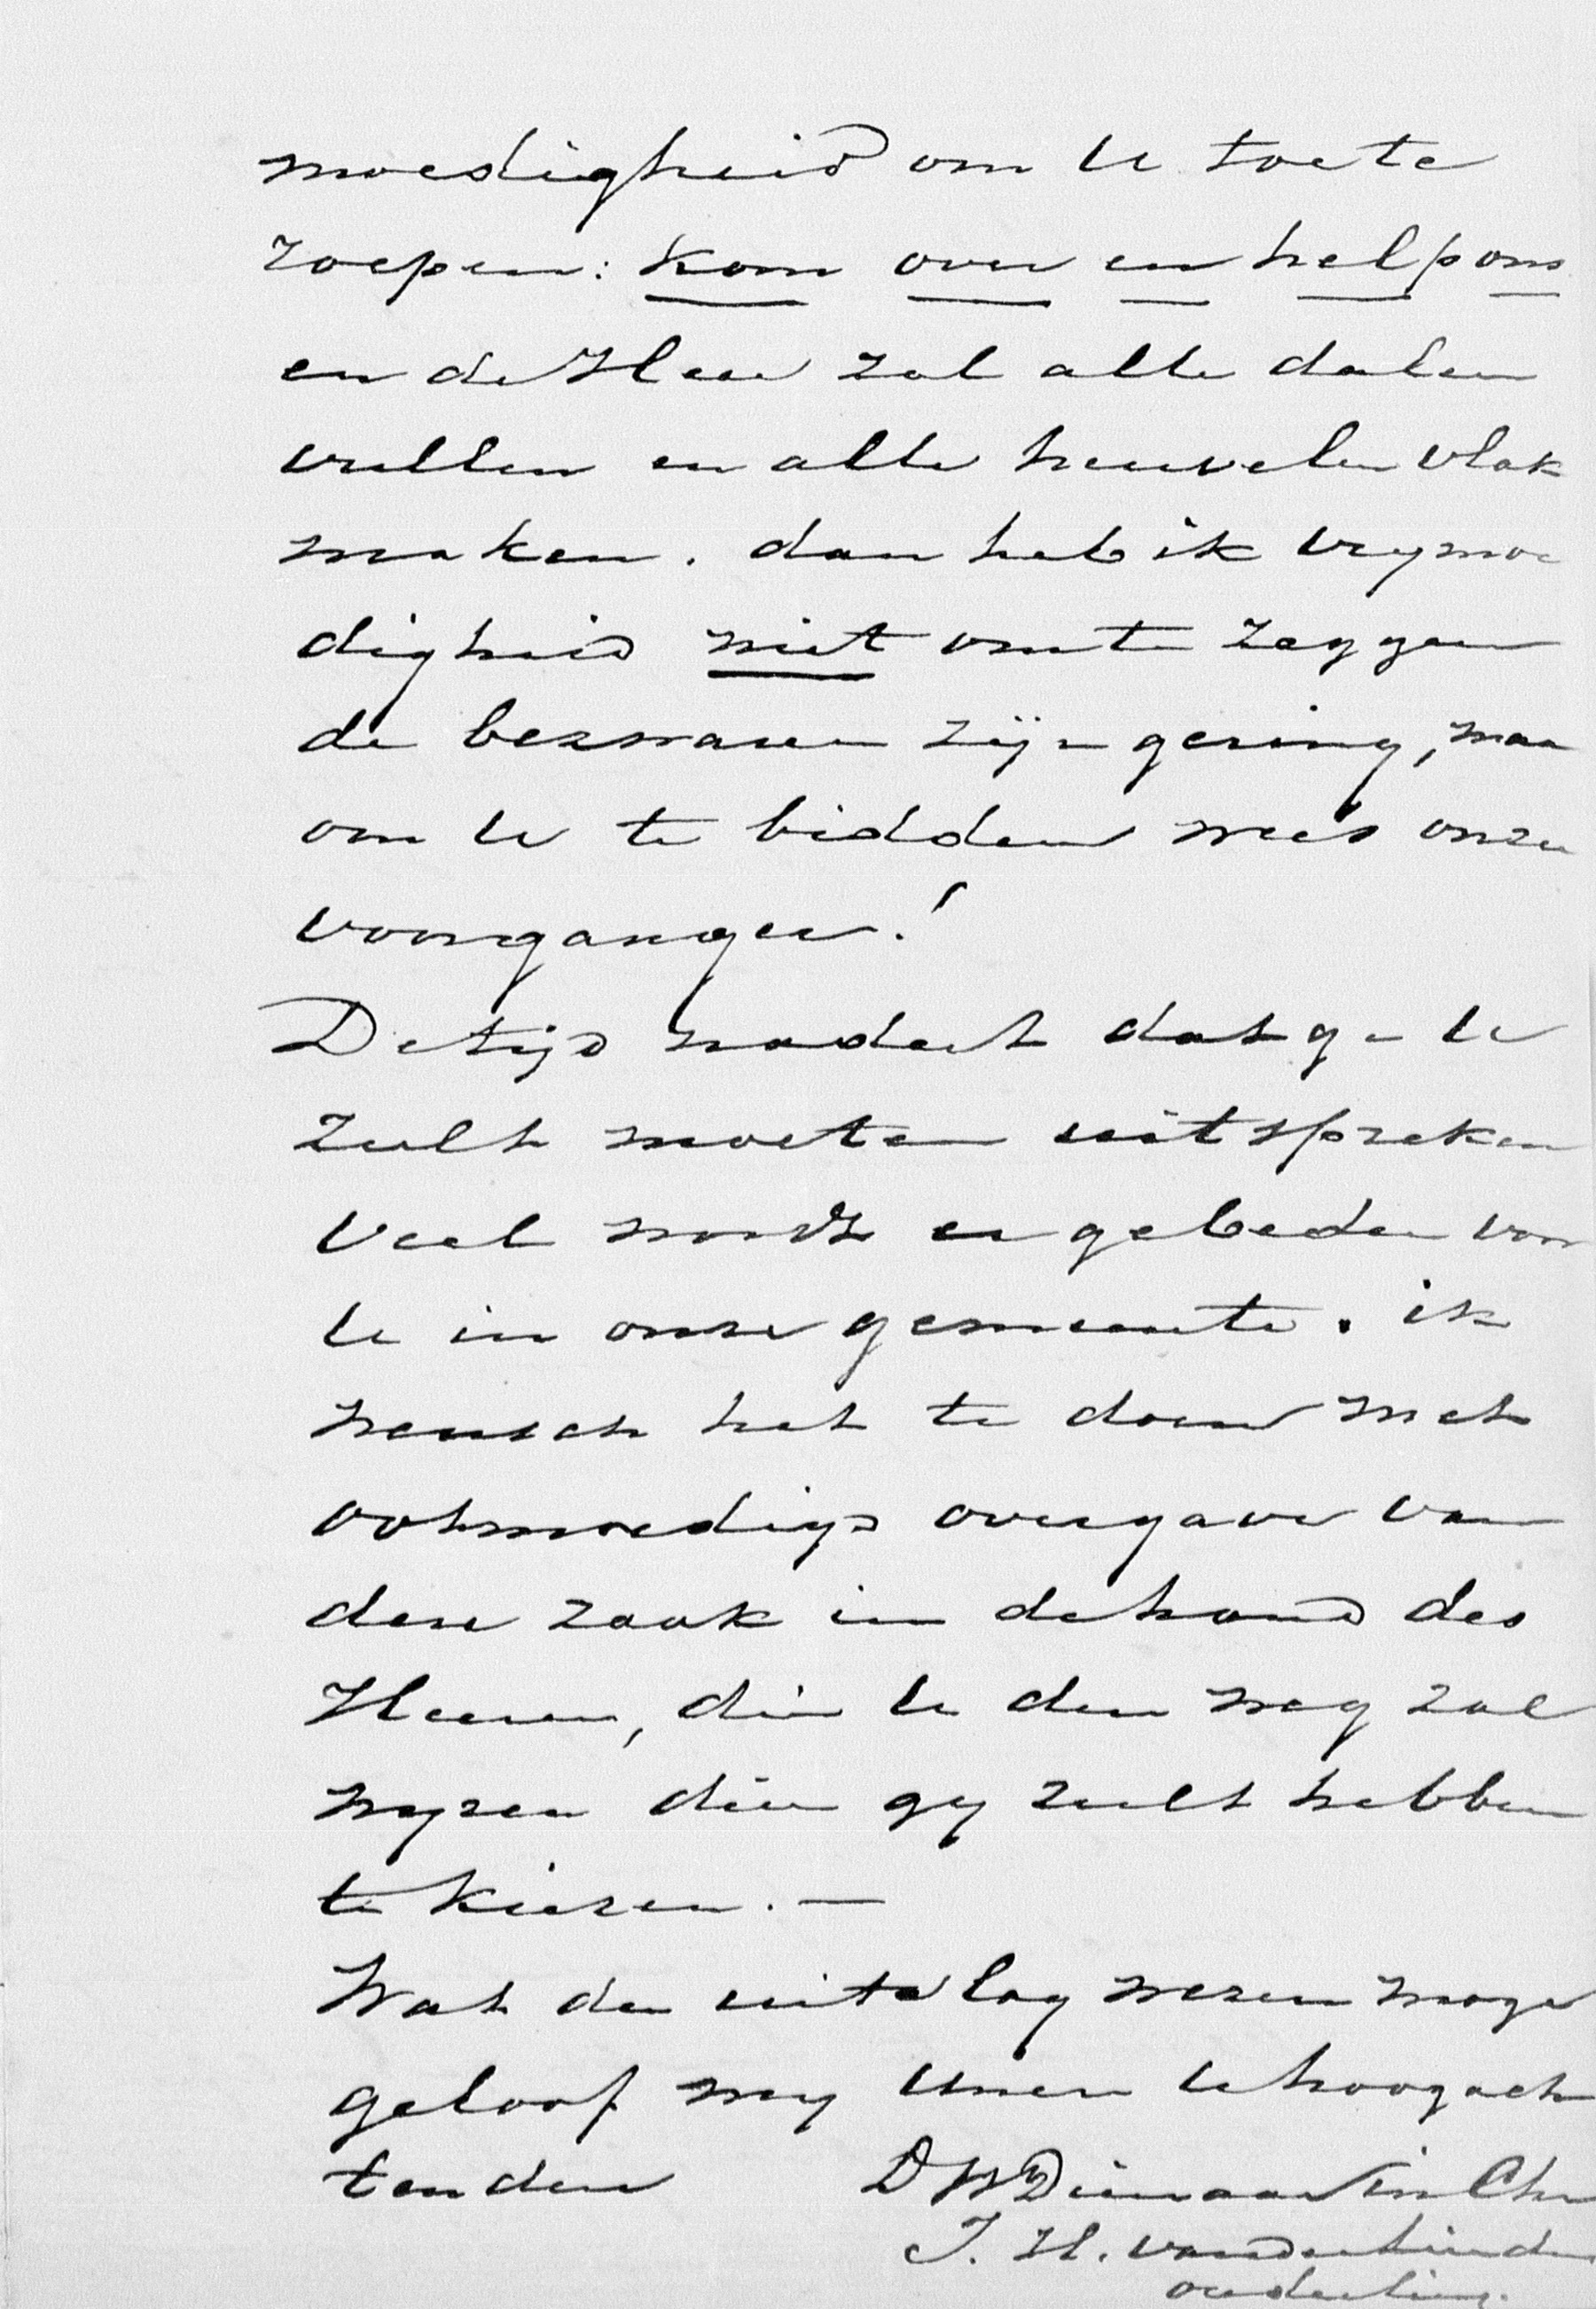 moedigheid om U toe te
roepen: kom over en help ons
en de Heer zal alle dalen
vullen en alle heuvelen vlak
maken. dan heb ik vrymoe
digheid niet om te zeggen
de bezwaren zijn gering, maar
om U te bidden wees onze
voorganger!
De tijd nadert dat ge U
zult moeten uitspreken
Veel wordt er gebeden voor
U in onze gemeente. ik
wensch het te doen met
ootmoedige overgave van
deze zaak in de hand des
Heeren, die U den weg zal
wyzen dien gy zult hebben
te kiezen. —
Wat de uitslag wezen moge
geloof my Uwen U hoogach
tenden DW Dienaar in Chr
J. H. van der Linden
ouderling.